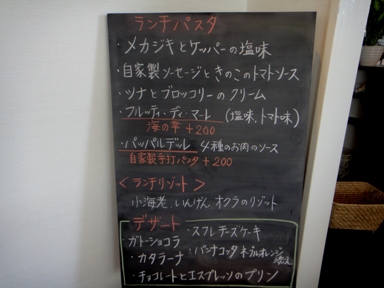 ランチパスタ
・メカジキとケッパーの塩味
・自家製ソーセージときのこのトマトソース
・ツナとブロッコリーのクリーム
・フルッティ・ディ・マーレ (塩味、トマト味)
海の幸 +200
・パッパルデッレ 4種のお肉のソース
自家製手打パスタ +200
<ランチリゾット>
小海老、いんげん、オクラのリゾット
デザート
・スフレチーズケーキ
・ガトーショコラ
・パンナコッタ ネーブルオレンジ添え
・カタラーナ
・チョコレートとエスプレッソのプリン